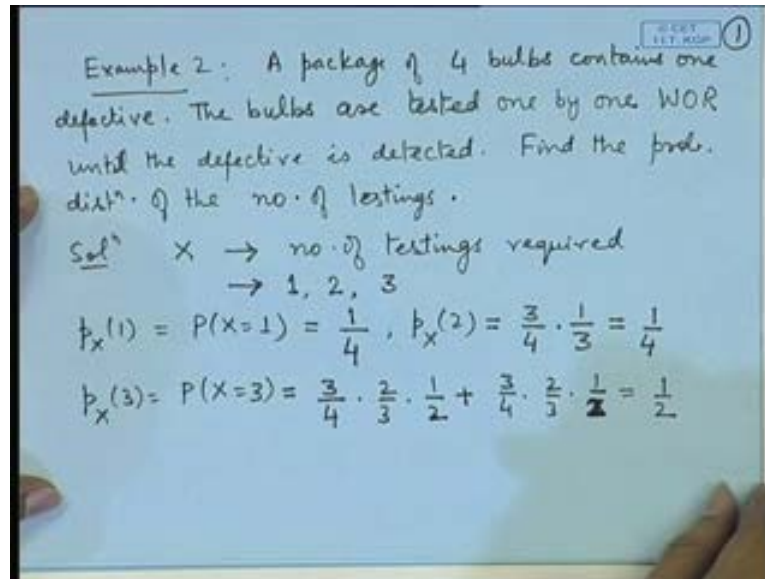 © CET
I.I.T. KGP
1
Example 2: A package of 4 bulbs contains one
defective. The bulbs are tested one by one WOR
until the defective is detected. Find the prob.
distⁿ. of the no. of testings.
Solⁿ X → no. of testings required
→ 1, 2, 3
p_X(1) = P(X=1) = 1/4, p_X(2) = 3/4 · 1/3 = 1/4
p_X(3) = P(X=3) = 3/4 · 2/3 · 1/2 + 3/4 · 2/3 · 1/2 = 1/2